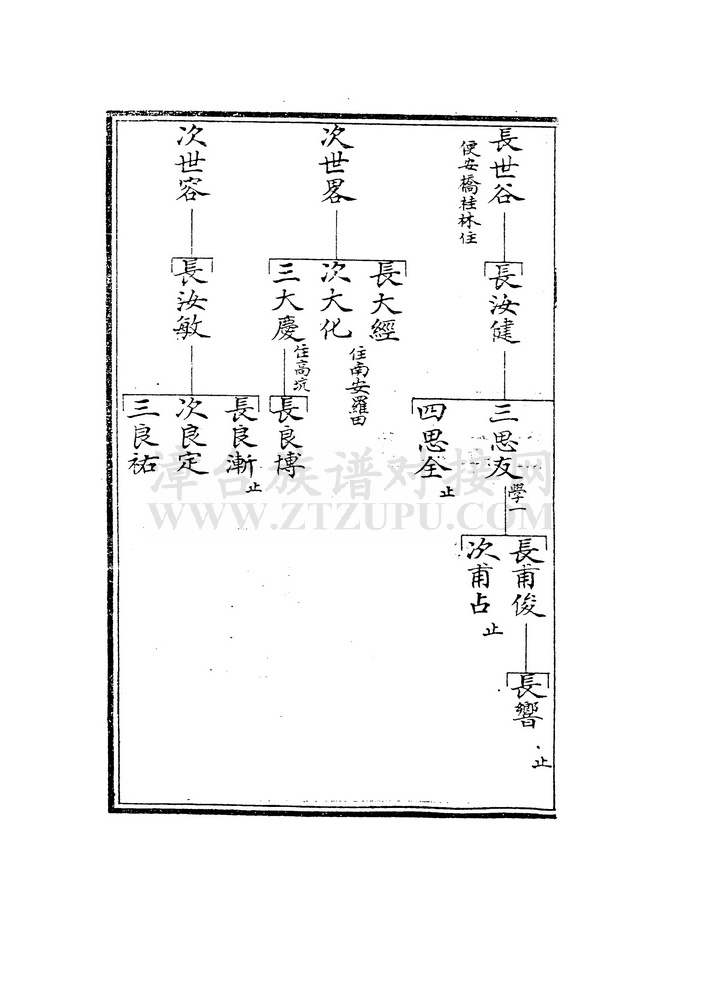 長世谷
便安橋桂林住
長汝健
三思友
學一
四思全
止
長甫俊
次甫占
止
長響
止
次世畧
長大經
次大化
住南安羅田
三大慶
住高坑
長良博
次世容
長汝敏
長良漸
止
次良定
三良祐
漳台族谱对接网
WWW.ZTZUPU.COM